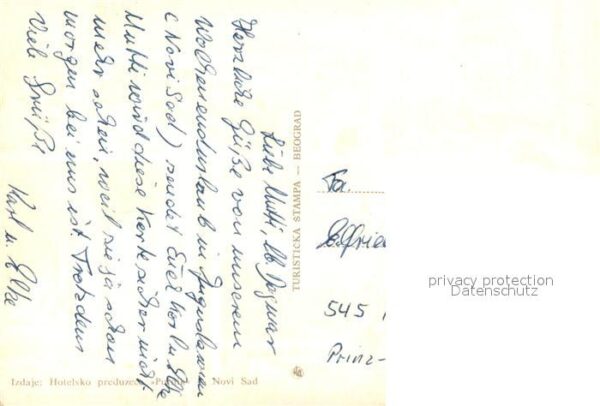 Liebe Mutti, lb Dagmar
Herzliche Grüße von unserem
Wochenendurlaub in Jugoslawien
(Novi Sad) sendet Euch Karl u. Elke
Mutti wird diese Karte sicher nicht
mehr sehen, weil sie ja schon
morgen bei uns ist. Trotzdem
Viele Grüße
Karl u. Elke
TURISTICKA STAMPA — BEOGRAD
Fa.
Elfrie
545
Prinz-
privacy protection
Datenschutz
Izdaje: Hotelsko preduzeće Novi Sad